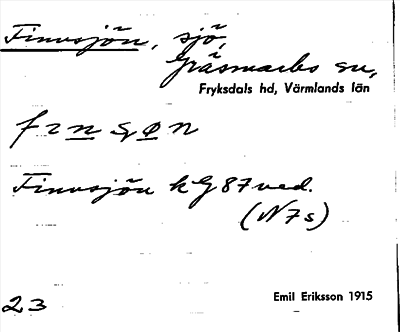 Finnsjön, sjö,
Gräsmarks sn,
Fryksdals hd, Värmlands län
Finnsjön kG 87 ved.
(N7s)
23
Emil Eriksson 1915